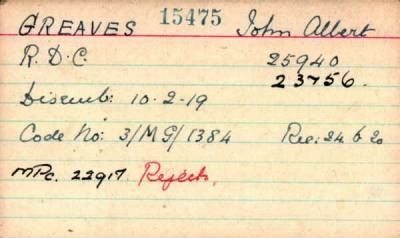 GREAVES 15475 John Albert
R.D.C. 25940
23756.
Disemb: 10-2-19
Code No: 3/MG/1384 Rec: 24 6 20
MPC. 22917 Rejects.